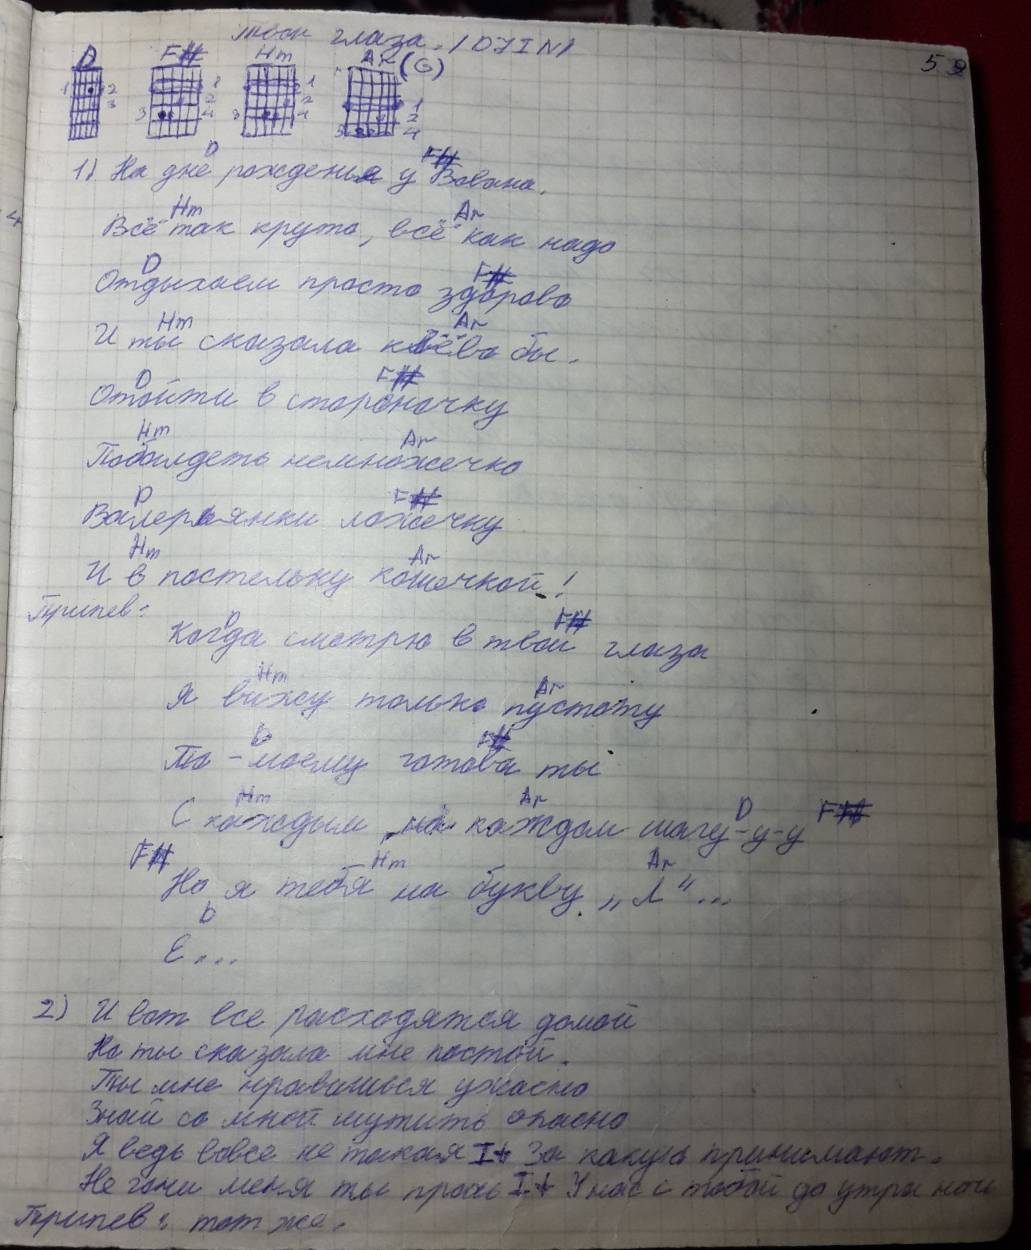 твои глаза. /DJIN/
59
D F# Hm Ar (G)
1 2 3 1 2 3 4 1 2 3 4 1 2 3 4
D F#
1) На дне рожденья у Вована.
Hm Ar
Всё так круто, всё как надо
D F#
Отдыхаем просто здорово
Hm Ar
И ты сказала клёво бы.
D F#
Отойти в стороночку
Hm Ar
Побалдеть немножечко
D F#
Валерьянки ложечку
Hm Ar
И в постельку кошечкой!
Припев:
D F#
Когда смотрю в твои глаза
Hm Ar
Я вижу только пустоту
D F#
По-моему готова ты
Hm Ar D F#
С каждым на каждом шагу-у-у
F# Hm Ar
Но я тебя на букву „Л"...
D
Е...
2) И вот все расходятся домой
Но ты сказала мне постой.
Ты мне нравишься ужасно
Знай со мной шутить опасно
Я ведь вовсе не такая I+ За какую принимают.
Не гони меня ты прочь I+ У нас с тобой до утра ночь
Припев: тот же.